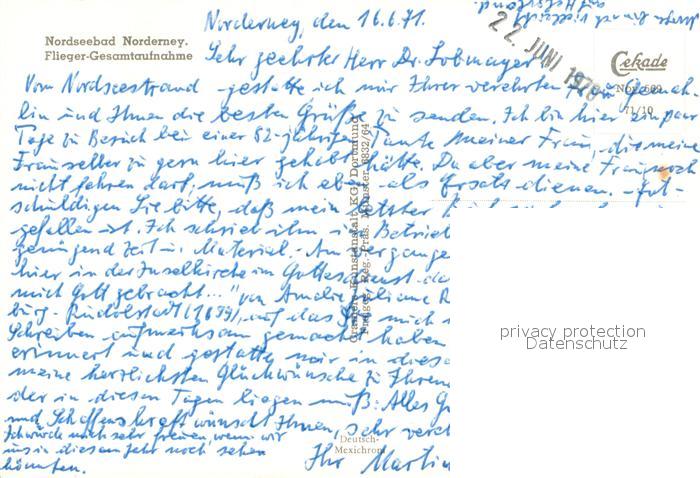 Norderney, den 16.6.71.
Nordseebad Norderney.
Flieger-Gesamtaufnahme
22. JUNI
Cekade
71/10
Sehr geehrter Herr Dr. Lobmayer
Vom Nordseestrand gestatte ich mir Ihrer verehrten Frau Gemah-
lin und Ihnen die besten Grüße zu senden. Ich bin hier ein paar
Tage zu Besuch bei einer 82-jährigen Tante meiner Frau, die meine
Frau selber zu gern hier gehabt hätte. Da aber meine Frau noch
nicht fahren darf, muß ich eben als Ersatz dienen. Ent-
schuldigen Sie bitte, daß mein letzter
gefallen ist. Ich schrieb ihn im Betrieb
genügend Zeit u. Material. Am vergange
hier in der Inselkirche im Gottesdienst
mich Gott gebracht..." von Amalie Juliane R
burg-Rudolstadt (1699), auf das Sie mich
Schreiben aufmerksam gemacht haben
erinnert und gestatte mir in diese
meine herzlichsten Glückwünsche zu Ihrem
der in diesen Tagen liegen muß: Alles G
und Schaffenskraft wünscht Ihnen, sehr vereh
Ich würde mich sehr freuen, wenn wir
uns in diesem Jahr noch sehen
könnten.
Ihr Martin
Deutsch-
Mexichrom
privacy protection
Datenschutz